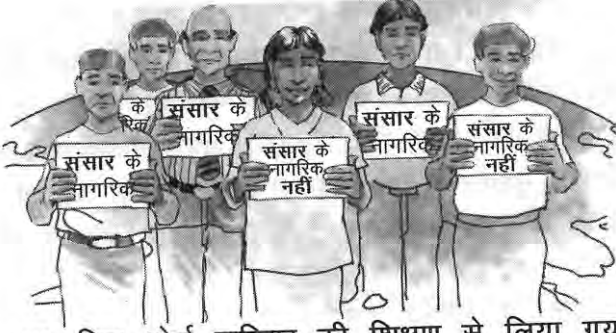 के
संसार के
नागरिक
संसार के
नागरिक
संसार के
नागरिक
नहीं
संसार के
नागरिक
संसार के
नागरिक
नहीं
की शिक्षण से लिया